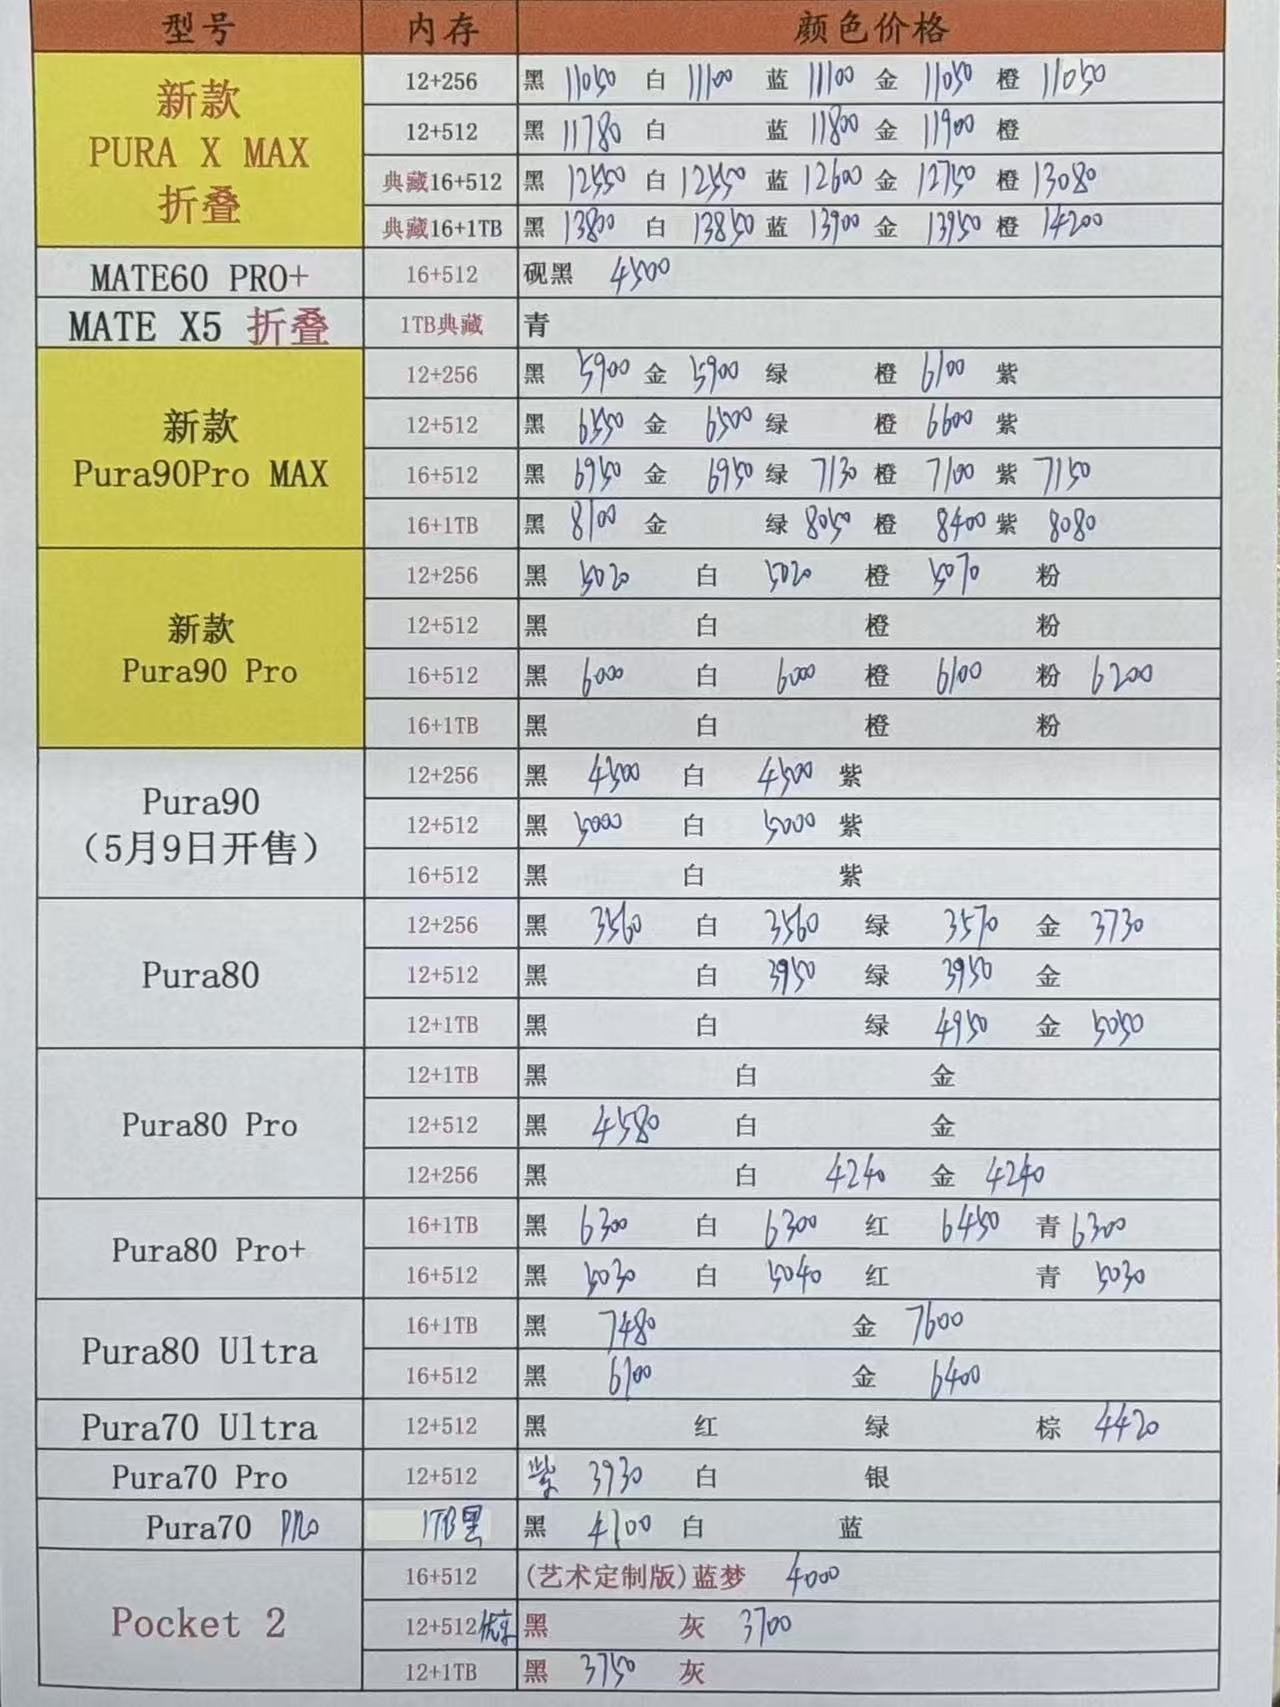 型号 内存 颜色价格
新款
PURA X MAX
折叠
12+256 黑 11050 白 11100 蓝 11100 金 11050 橙 11050
12+512 黑 11780 白 蓝 11800 金 11900 橙
典藏16+512 黑 12550 白 12550 蓝 12600 金 12750 橙 13080
典藏16+1TB 黑 13800 白 13850 蓝 13900 金 13950 橙 14200
MATE60 PRO+ 16+512 砚黑 4500
MATE X5 折叠 1TB典藏 青
新款
Pura90Pro MAX
12+256 黑 5900 金 5900 绿 橙 6100 紫
12+512 黑 6550 金 6500 绿 橙 6600 紫
16+512 黑 6950 金 6950 绿 7130 橙 7100 紫 7150
16+1TB 黑 8100 金 绿 8050 橙 8400 紫 8080
新款
Pura90 Pro
12+256 黑 5020 白 5020 橙 5070 粉
12+512 黑 白 橙 粉
16+512 黑 6000 白 6000 橙 6100 粉 6200
16+1TB 黑 白 橙 粉
Pura90
（5月9日开售）
12+256 黑 4500 白 4500 紫
12+512 黑 5000 白 5000 紫
16+512 黑 白 紫
Pura80
12+256 黑 3560 白 3560 绿 3570 金 3730
12+512 黑 白 3950 绿 3950 金
12+1TB 黑 白 绿 4950 金 5050
Pura80 Pro
12+1TB 黑 白 金
12+512 黑 4580 白 金
12+256 黑 白 4240 金 4240
Pura80 Pro+
16+1TB 黑 6300 白 6300 红 6450 青 6300
16+512 黑 5030 白 5040 红 青 5030
Pura80 Ultra
16+1TB 黑 7480 金 7600
16+512 黑 6100 金 6400
Pura70 Ultra 12+512 黑 红 绿 棕 4420
Pura70 Pro 12+512 紫 3930 白 银
Pura70 Pro 1TB黑 黑 4100 白 蓝
Pocket 2
16+512 (艺术定制版)蓝梦 4000
12+512优享 黑 灰 3700
12+1TB 黑 3750 灰